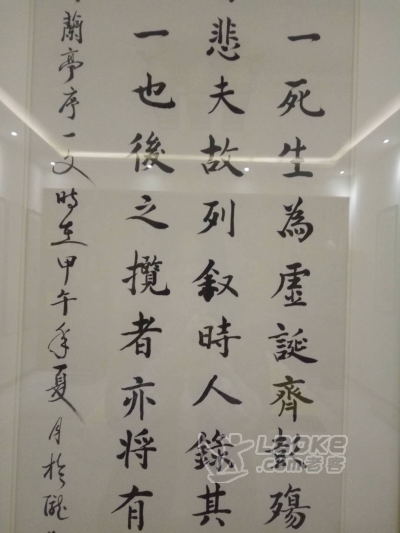 一死生為虛誕齊彭殤
悲夫故列叙時人錄其
一也後之攬者亦将有
蘭亭序一文時在甲午年夏月於
LAOKE
.com老客